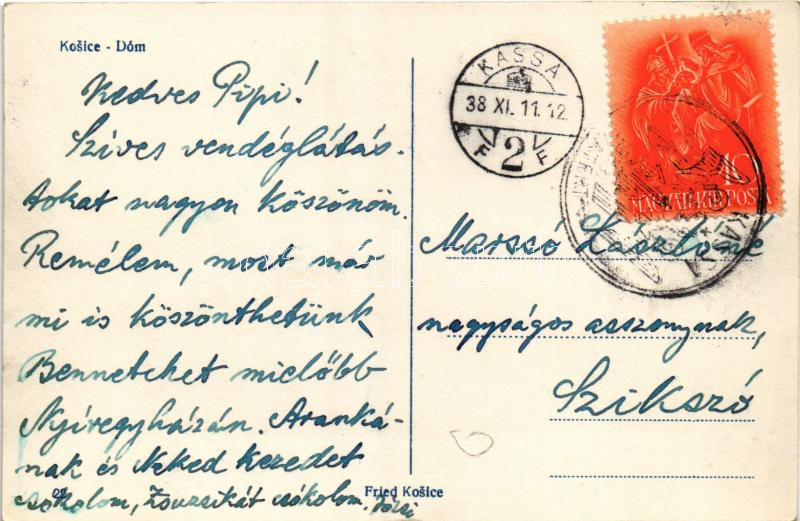 Košice - Dóm
Kedves Pipi!
Szives vendéglátás-
tokat nagyon köszönöm.
Remélem, most már
mi is köszönthetünk
Benneteket mielőbb
Nyíregyházán. Aranká-
nak és Neked kezedet
csókolom, Zsuzsikát csókolom.
Fried Košice
KASSA
38 XI. 11. 12
F 2 F
MAGYAR KIR. POSTA
KASSA
László né
nagyságos asszonynak,
Szikszó